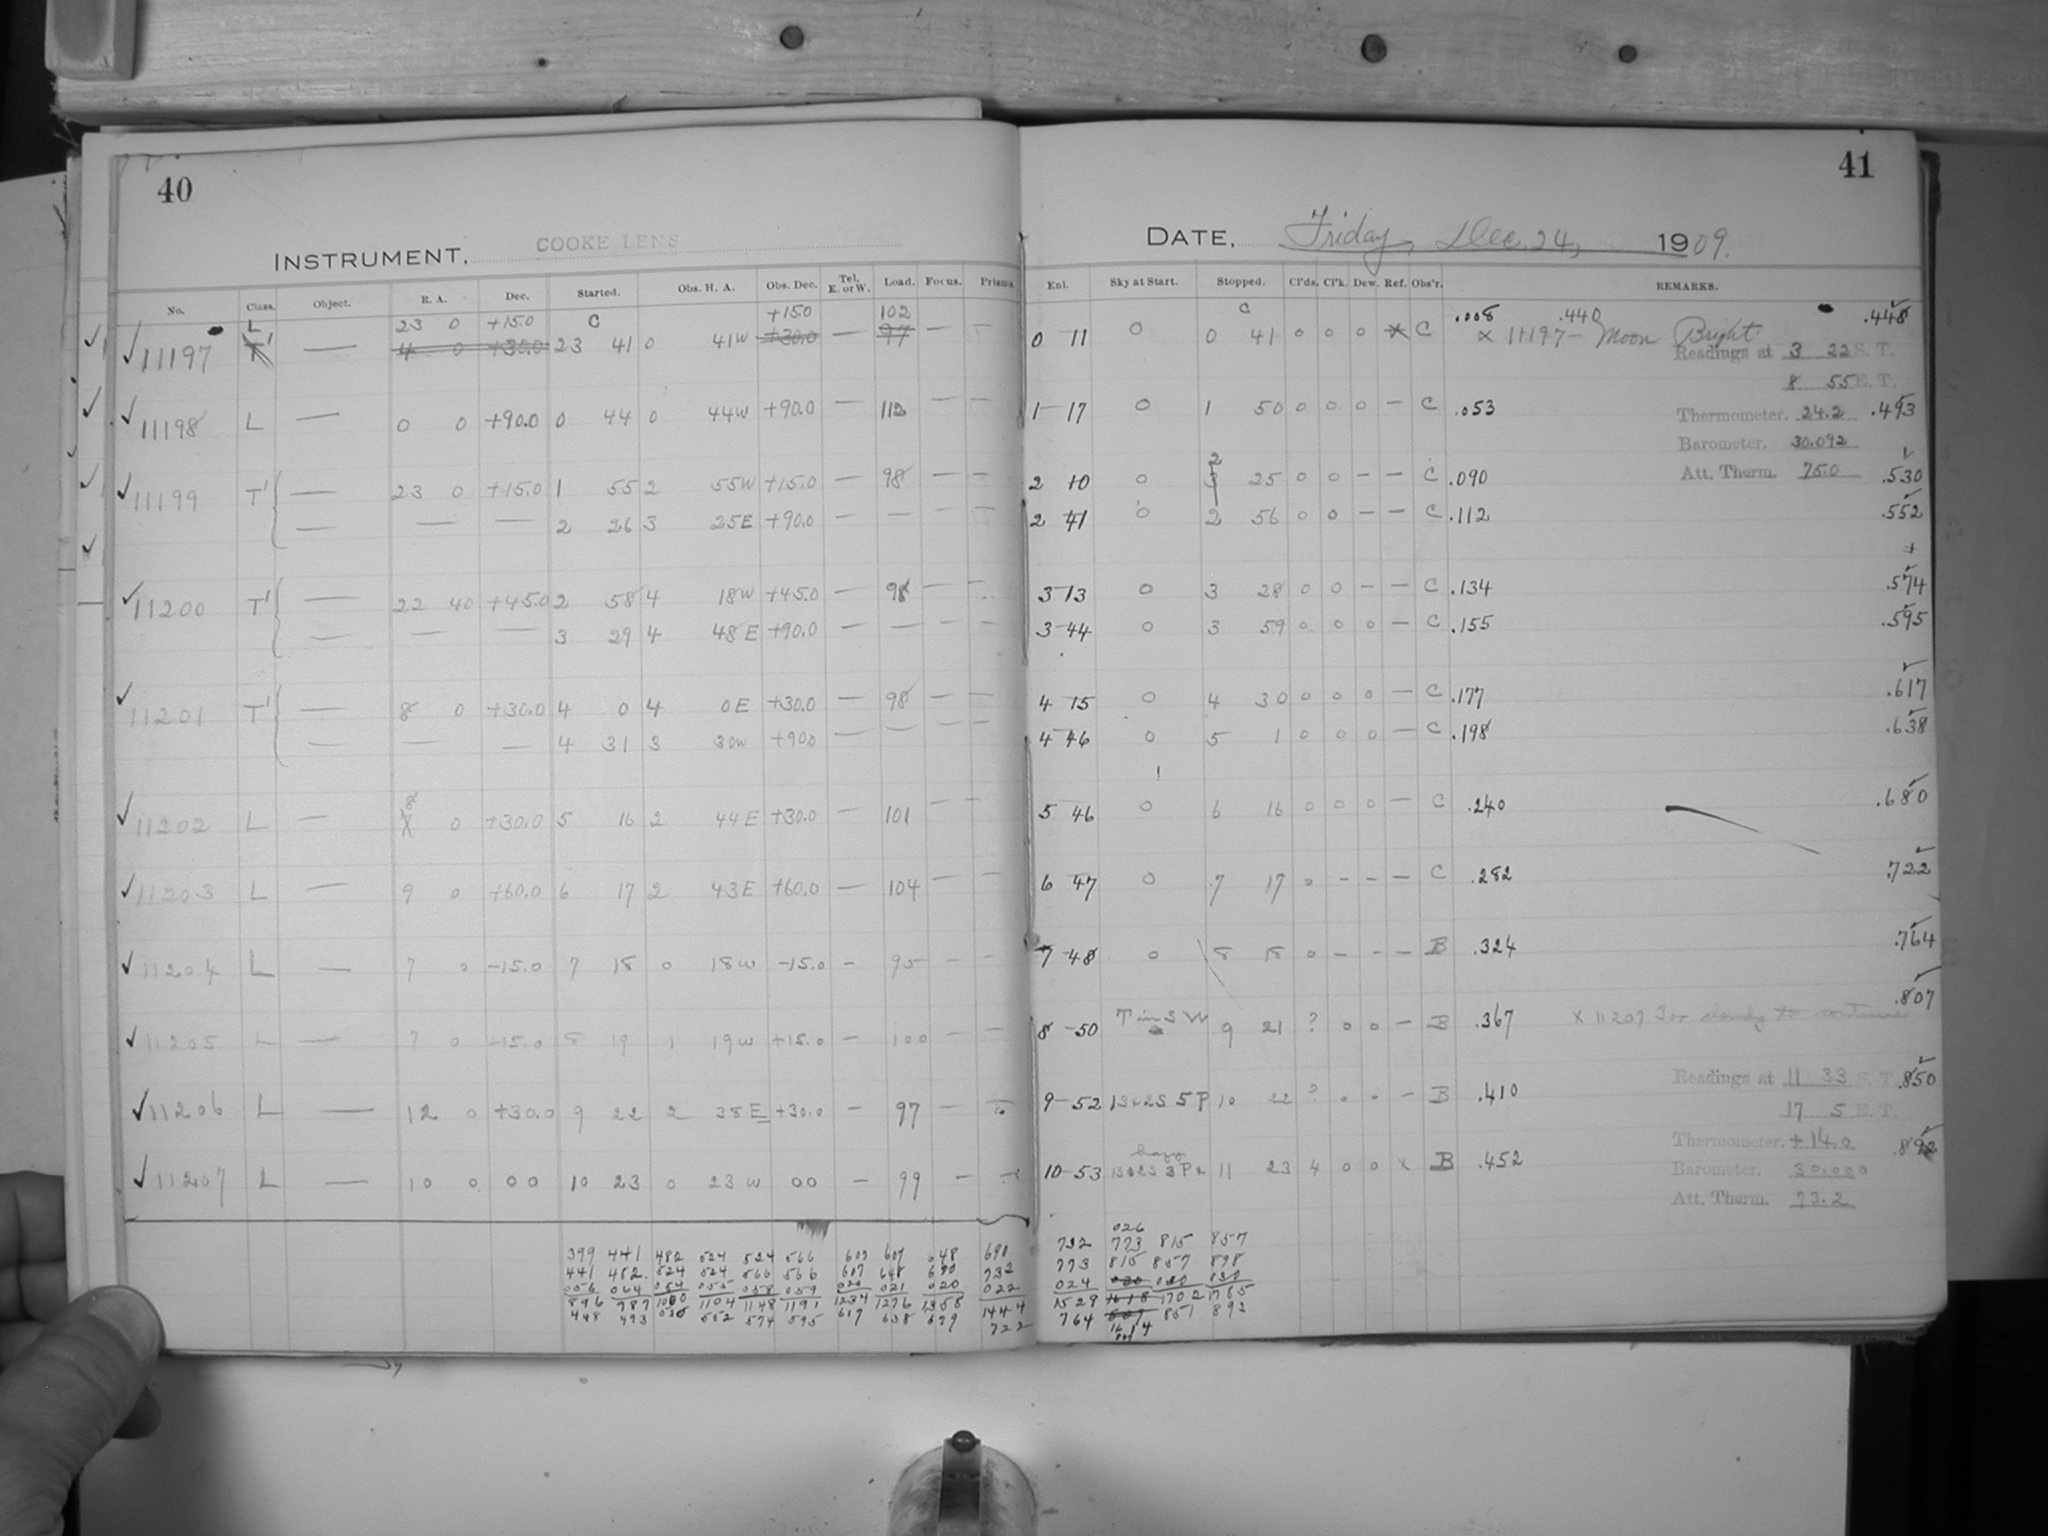 40
INSTRUMENT, COOKE LENS
No. Class. Object. R. A. Dec. Started. Obs. H. A. Obs. Dec. Tel. E. or W. Load. Focus. Prisms
L 23 0 +15.0 C +15.0 102
✓ 11197 T' — 4 0 +30.0 23 41 0 41W +30.0 — 97 — —
✓ 11198 L — 0 0 +90.0 0 44 0 44W +90.0 — 112 — —
✓ 11199 T' — 23 0 +15.0 1 55 2 55W +15.0 — 98 — —
— — — 2 26 3 25E +90.0 — — — —
✓ 11200 T' — 22 40 +45.0 2 58 4 18W +45.0 — 98 —
— — — 3 29 4 48E +90.0 — — — —
✓ 11201 T' — 8 0 +30.0 4 0 4 0E +30.0 — 98 — —
— — — 4 31 3 30W +90.0 — — — —
8
✓ 11202 L — 0 +30.0 5 16 2 44E +30.0 — 101 — —
✓ 11203 L — 9 0 +60.0 6 17 2 43E +60.0 — 104 — —
✓ 11204 L — 7 0 -15.0 7 18 0 18W -15.0 - 95 — —
✓ 11205 L — 7 0 +15.0 8 19 1 19W +15.0 — 100 — —
✓ 11206 L — 12 0 +30.0 9 22 2 38E +30.0 — 97 —
✓ 11207 L — 10 0 00 10 23 0 23W 00 — 99 —
399 441 482 524 524 566 607 607 648 690
441 482 524 524 566 566 607 648 690 732
056 064 054 055 058 059 020 021 020 022
896 987 1060 1104 1148 1191 1234 1276 1358 1444
448 493 530 552 574 595 617 638 679 722
41
DATE, Friday, Dec. 24, 1909.
Enl. Sky at Start. Stopped. Cl'ds. Cl'k. Dew. Ref. Obs'r. REMARKS.
C .008 .440 .448
0 11 0 0 41 0 0 0 x C x 11197 — Moon Bright
Readings at 3 22 S. T.
8 55 E. T.
1 17 0 1 50 0 0 0 — C .053 Thermometer. 24.2 .493
Barometer. 30.092
2
2 10 0 25 0 0 — — C .090 Att. Therm. 75.0 .530
2 41 0 2 56 0 0 — — C .112 .552
3 13 0 3 28 0 0 — — C .134 .574
3 44 0 3 59 0 0 0 — C .155 .595
4 15 0 4 30 0 0 0 — C .177 .617
4 46 0 5 1 0 0 0 — C .198 .638
5 46 0 6 16 0 0 0 — C .240 .680
6 47 0 7 17 0 - - — C .282 .722
7 48 0 8 18 0 - - - B .324 .764
8 50 T in S W 9 21 ? 0 0 — B .367 x 11207 Too cloudy to continue .807
Readings at 11 33 S. T. .850
17 5 E. T.
9 52 5 P 10 22 ? 0 0 — B .410
hazy Thermometer. +14.0 .892
10 53 11 23 4 0 0 x B .452 Barometer. 30.020
Att. Therm. 73.2
026
732 773 815 857
773 815 857 898
024 030 030
1529 1618 1702 1785
764 851 892